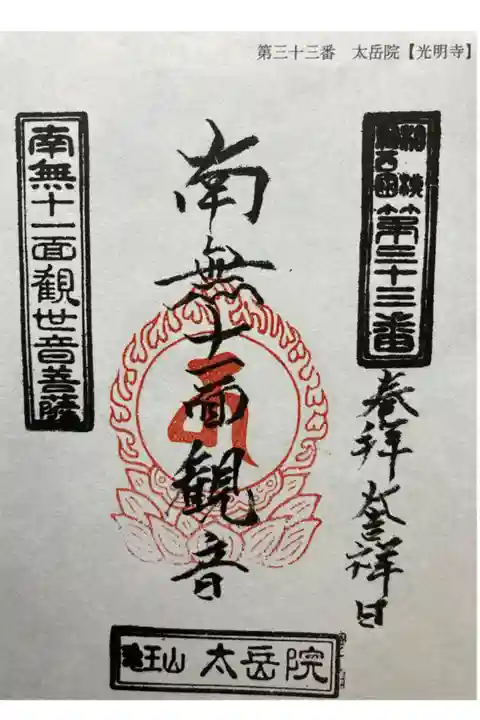 第三十三番　太岳院【光明寺】
第三十三番
奉拝
祥日
南無十一面観音
南無十一面観世音菩薩
王山 太岳院